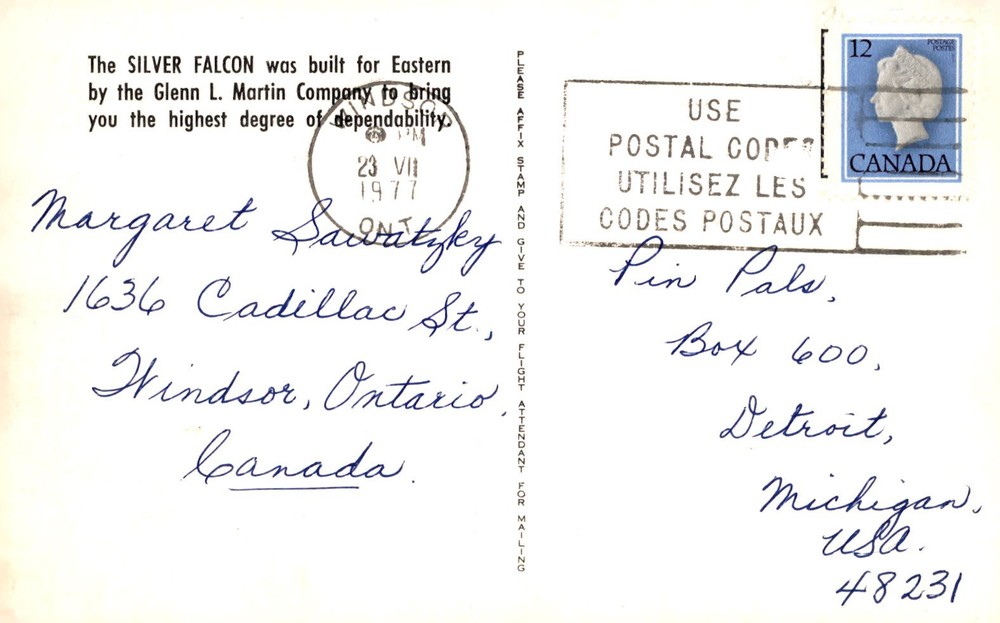 The SILVER FALCON was built for Eastern
by the Glenn L. Martin Company to bring
you the highest degree of dependability.
WINDSOR
PM
23 VII
1977
ONT.
Margaret Sawatzky
1636 Cadillac St.,
Windsor, Ontario,
Canada.
PLEASE AFFIX STAMP AND GIVE TO YOUR FLIGHT ATTENDANT FOR MAILING
USE
POSTAL CODES
UTILISEZ LES
CODES POSTAUX
12
POSTAGE
POSTES
CANADA
Pin Pals,
Box 600,
Detroit,
Michigan,
USA.
48231